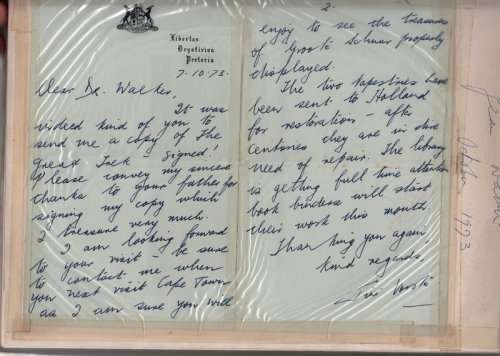 Libertas
Bryntirion
Pretoria
7-10-73.
Dear Dr. Walker,
It was
indeed kind of you to
send me a copy of The
Great Trek - signed!
Please convey my sincere
thanks to your father for
signing my copy which
I treasure very much.
I am looking forward
to your visit - be sure
to contact me when
you next visit Cape Town
as I am sure you will
2.
enjoy to see the treasures
of Groote Schuur properly
displayed.
The two tapestries have
been sent to Holland
for restoration - after
centuries they are in dire
need of repair. The library
is getting full time attention
book binders will start
their work this month.
Thanking you again
kind regards,
1973